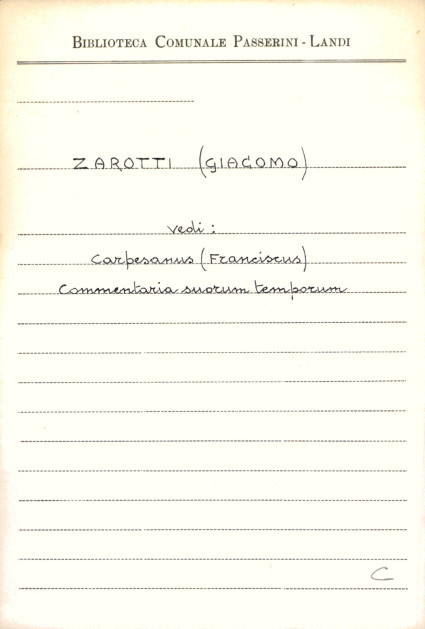 BIBLIOTECA COMUNALE PASSERINI - LANDI
ZAROTTI (GIACOMO)
vedi :
Carpesanus (Franciscus)
Commentaria suorum temporum
C